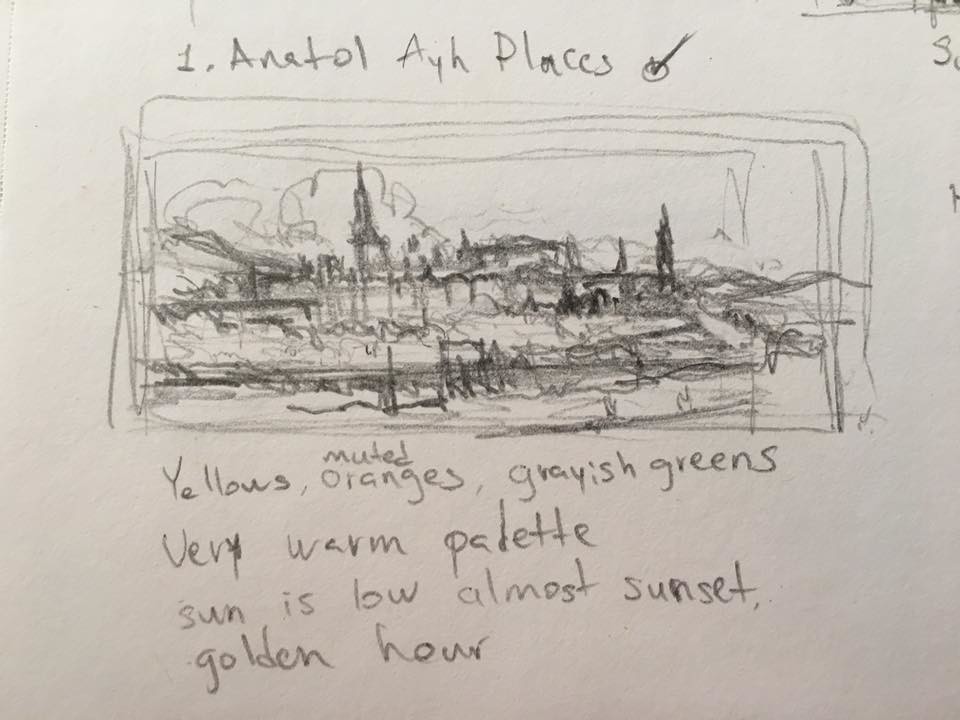 1. Anatol Ayh Places
Yellows, muted oranges, grayish greens
Very warm palette
sun is low almost sunset,
golden hour